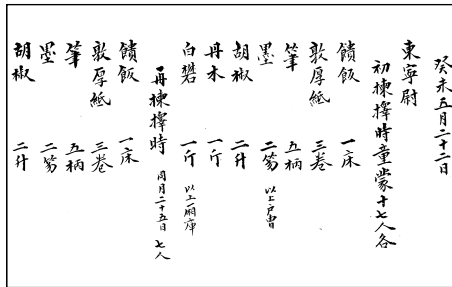 癸未五月二十二日
東寧尉
初揀擇時童蒙十七人各
饋飯 一床
敦厚紙 三卷
筆 五柄
墨 二笏 以上戶曹
胡椒 二升
丹木 一斤
白礬 一斤 以上廂庫
再揀擇時 同月二十五日 七人
饋飯 一床
敦厚紙 三卷
筆 五柄
墨 二笏
胡椒 二升